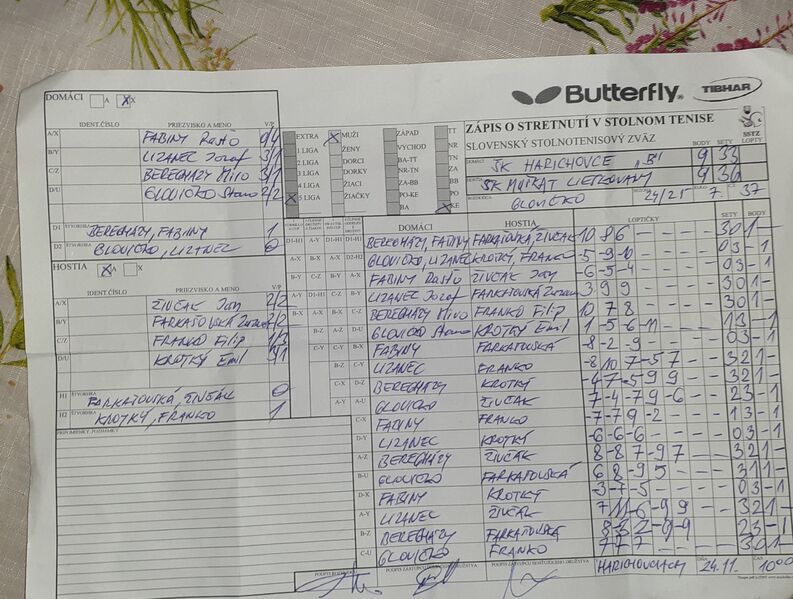 Butterfly TIBHAR
DOMÁCI A X X
IDENT.ČÍSLO PRIEZVISKO A MENO V/P
A/X FABINY Rasťo 0/4
B/Y LIZANEC Jozef 3/1
C/Z BEREGHÁZY Miro 3/1
D/U GLOVIČKO Stano 2/2
D1 ŠTVORHRA BEREGHÁZY, FABINY 1
D2 ŠTVORHRA GLOVIČKO, LIZANEC 0
HOSTIA X A X
IDENT.ČÍSLO PRIEZVISKO A MENO V/P
A/X ŽIVČÁK Ján 2/2
B/Y FARKAŠOVSKÁ Zuzana 2/2
C/Z FRANKO Filip 1/3
D/U KROTKÝ Emil
H1 ŠTVORHRA FARKAŠOVSKÁ, ŽIVČÁK 0
H2 ŠTVORHRA KROTKÝ, FRANKO 1
PRIPOMIENKY, POZNÁMKY
EXTRA X MUŽI ZÁPAD TT
1 LIGA ŽENY VÝCHOD NR
2 LIGA DORCI BA-TT TN
3 LIGA DORKY NR-TN ZA
4 LIGA ŽIACI ZA-BB BB
X 5 LIGA ŽIAČKY PO-KE PO
BA X KE
ZÁPIS O STRETNUTÍ V STOLNOM TENISE
SLOVENSKÝ STOLNOTENISOVÝ ZVÄZ SSTZ
BODY SETY LOPTY
DOMÁCI ŠK HARICHOVCE "B" 9 33
HOSTIA ŠK MUŠKÁT LIETKOVANY 9 36
ROZHODCA GLOVIČKO 24/25 7. 37
DOMÁCI HOSTIA LOPTIČKY SETY BODY
D1-H1 BEREGHÁZY, FABINY FARKAŠOVSKÁ, ŽIVČÁK 10 8 6 - - - - 3 0 1 -
GLOVIČKO, LIZANEC KROTKÝ, FRANKO -5 -9 -10 - - - 0 3 - 1
FABINY Rasťo ŽIVČÁK Ján -6 -5 -4 - - - 0 3 - 1
LIZANEC Jozef FARKAŠOVSKÁ Zuzana 3 9 9 - - - - 3 0 1 -
BEREGHÁZY Miro FRANKO Filip 10 7 8 - - - - 3 0 1 -
GLOVIČKO Stano KROTKÝ Emil 1 -5 -6 -11 - - - 1 3 - 1
FABINY FARKAŠOVSKÁ -8 -2 -9 - - - - 0 3 - 1
LIZANEC FRANKO -8 10 7 -5 7 - - 3 2 1 -
BEREGHÁZY KROTKÝ -4 7 -5 9 9 - - 3 2 1 -
GLOVIČKO ŽIVČÁK 7 -4 -7 9 -6 - - 2 3 - 1
C-X FABINY FRANKO -7 -7 9 -2 - - - 1 3 - 1
D-Y LIZANEC KROTKÝ -6 -6 -6 - - - - 0 3 - 1
A-Z BEREGHÁZY ŽIVČÁK 8 -8 7 -9 7 - - 3 2 1 -
B-U GLOVIČKO FARKAŠOVSKÁ 6 8 -9 5 - - - 3 1 1 -
D-X FABINY KROTKÝ -3 -7 -5 - - - - 0 3 - 1
A-Y LIZANEC ŽIVČÁK 7 11 -6 -9 9 - - 3 2 1 -
B-Z BEREGHÁZY FARKAŠOVSKÁ 2 3 - 1
C-U GLOVIČKO FRANKO 7 7 7 - - - - 3 0 1 -
PODPIS ROZHODCU HARICHOVCIACH DŇA 24.11. 10:00